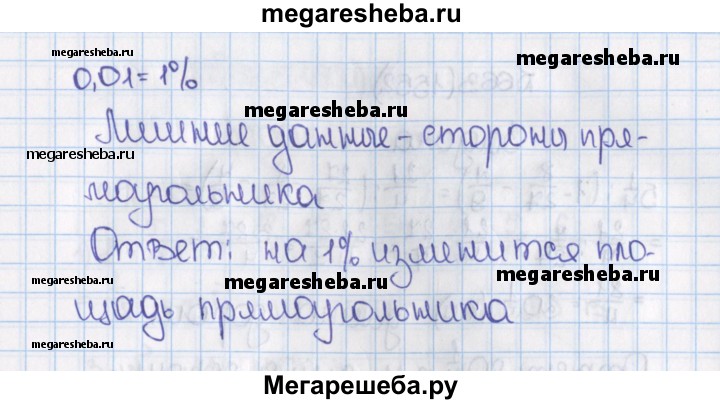 megaresheba.ru
megaresheba.ru
0,01 = 1%
megaresheba.ru
Лишние данные - стороны пря-
megaresheba.ru
моугольника
Ответ: на 1% изменится пло-
megaresheba.ru
megaresheba.ru
щадь прямоугольника
megaresheba.ru
Мегарешеба.ру